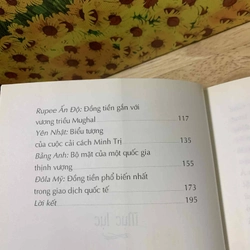 Rupee Ấn Độ: Đồng tiền gắn với
vương triều Mughal 117
Yên Nhật: Biểu tượng
của cuộc cải cách Minh Trị 135
Bảng Anh: Bộ mặt của một quốc gia
thịnh vượng 155
Đôla Mỹ: Đồng tiền phổ biến nhất
trong giao dịch quốc tế 173
Lời kết 195
Mục lục